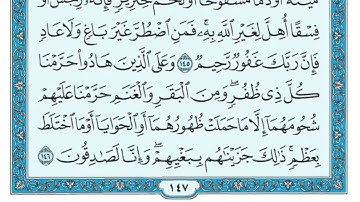 مَيْتَةً أَوْ دَمًا مَّسْفُوحًا أَوْ لَحْمَ خِنزِيرٍ فَإِنَّهُۥ رِجْسٌ أَوْ
فِسْقًا أُهِلَّ لِغَيْرِ ٱللَّهِ بِهِۦۚ فَمَنِ ٱضْطُرَّ غَيْرَ بَاغٍ وَلَا عَادٍ
فَإِنَّ رَبَّكَ غَفُورٌ رَّحِيمٌ ١٤٥ وَعَلَى ٱلَّذِينَ هَادُوا۟ حَرَّمْنَا
كُلَّ ذِى ظُفُرٍۖ وَمِنَ ٱلْبَقَرِ وَٱلْغَنَمِ حَرَّمْنَا عَلَيْهِمْ
شُحُومَهُمَآ إِلَّا مَا حَمَلَتْ ظُهُورُهُمَآ أَوِ ٱلْحَوَايَآ أَوْ مَا ٱخْتَلَطَ
بِعَظْمٍۚ ذَٰلِكَ جَزَيْنَٰهُم بِبَغْيِهِمْۖ وَإِنَّا لَصَٰدِقُونَ ١٤٦
١٤٧